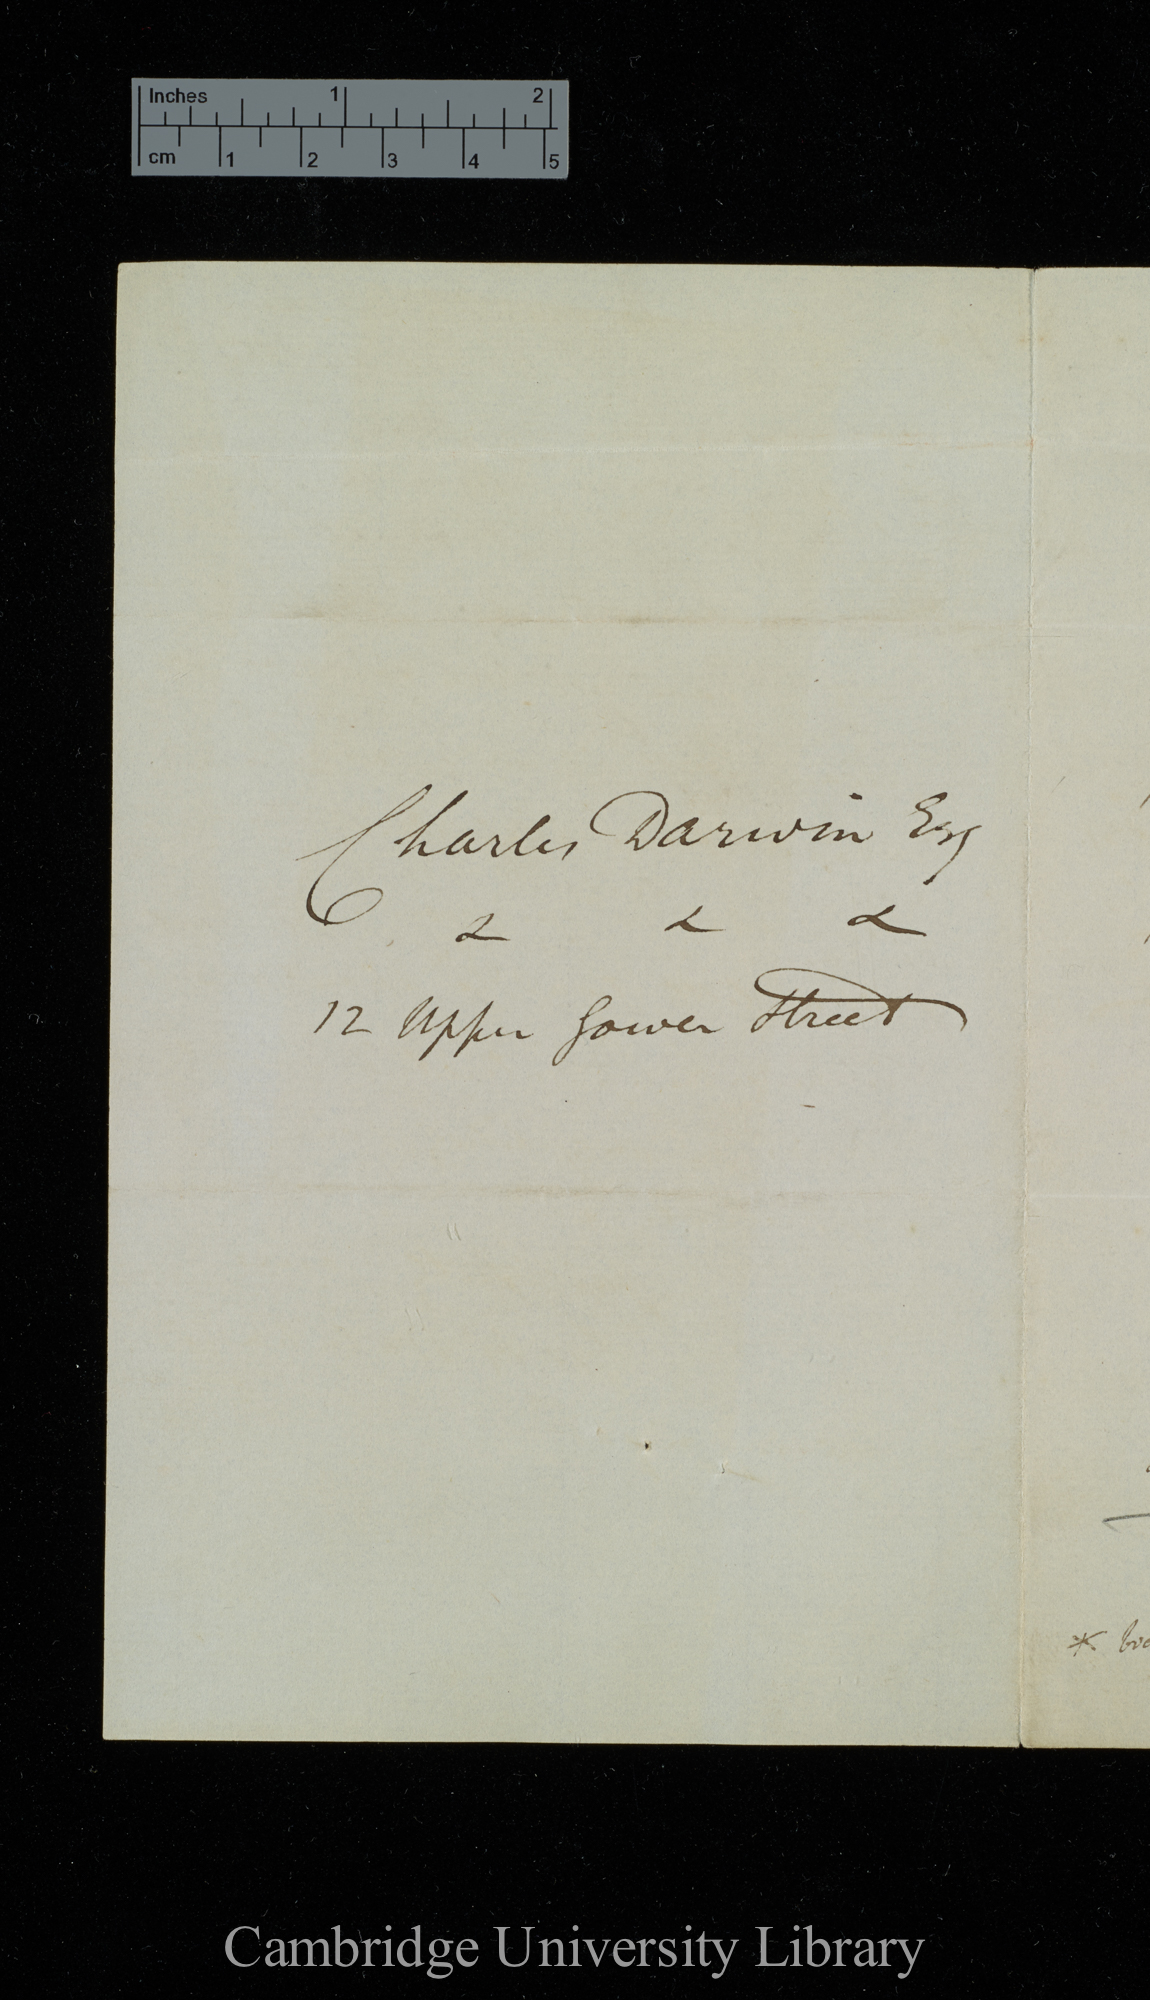 Inches 1 2
cm 1 2 3 4 5
Charles Darwin Esq
& & &
12 Upper Gower Street
*
Cambridge University Library